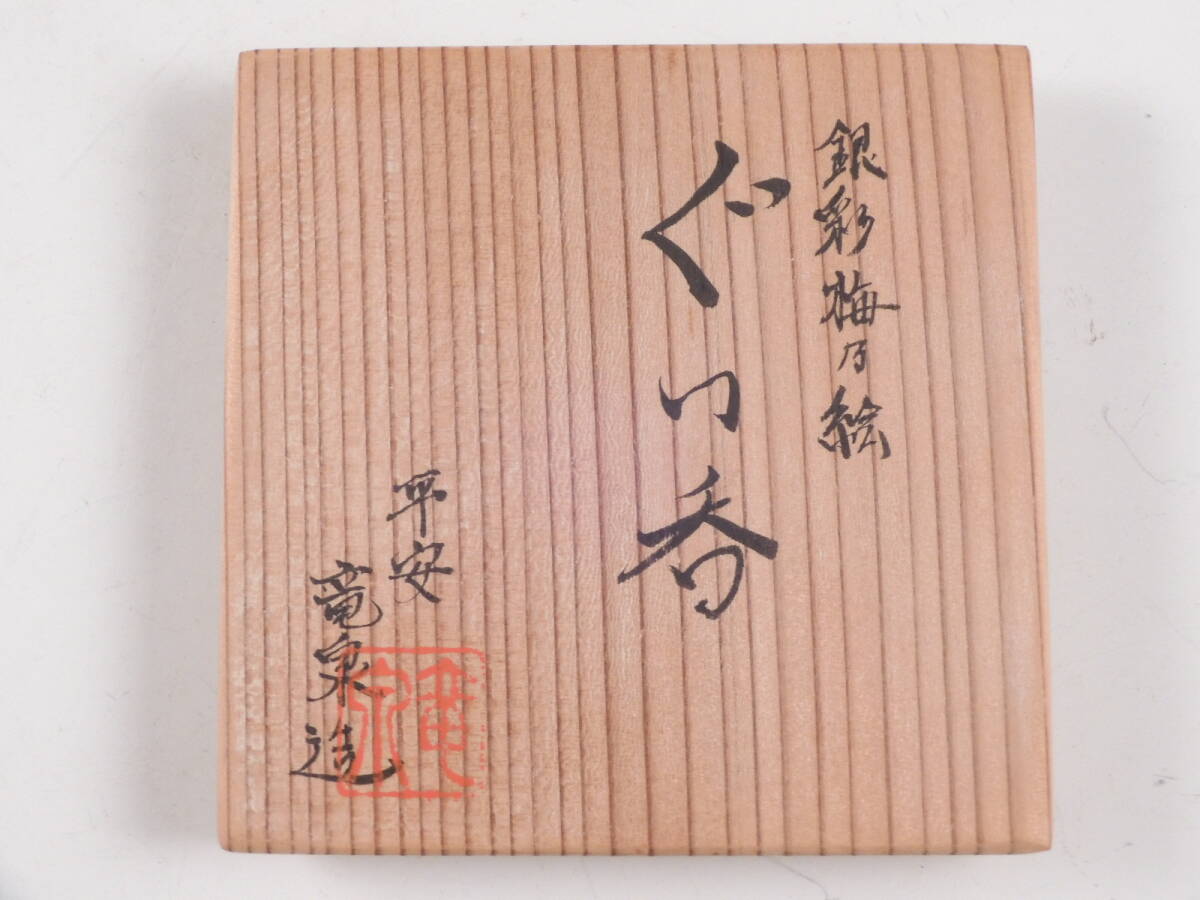 銀彩梅乃絵
ぐい呑
平安
竜泉造
竜泉